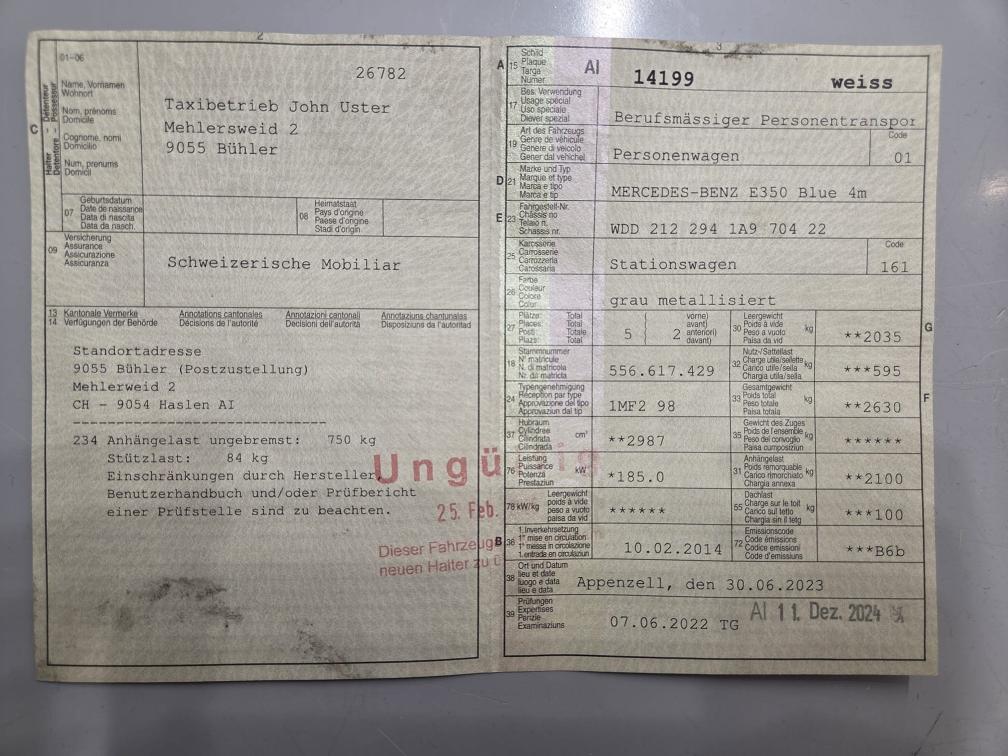 2
01-06
26782
Halter Détenteur
Detentore Possessur
C
Name, Vornamen
Wohnort
Nom, prénoms
Domicile
Cognome, nomi
Domicilio
Num, prenums
Domicil
Taxibetrieb John Uster
Mehlersweid 2
9055 Bühler
07
Geburtsdatum
Date de naissance
Data di nascita
Data da nasch.
08
Heimatstaat
Pays d'origine
Paese d'origine
Stadi d'origin
09
Versicherung
Assurance
Assicurazione
Assicuranza
Schweizerische Mobiliar
13 Kantonale Vermerke Annotations cantonales Annotazioni cantonali Annotaziuns chantunalas
14 Verfügungen der Behörde Décisions de l'autorité Decisioni dell'autorità Disposiziuns da l'autoritad
Standortadresse
9055 Bühler (Postzustellung)
Mehlerweid 2
CH - 9054 Haslen AI
----------------------------
234 Anhängelast ungebremst: 750 kg
Stützlast: 84 kg
Einschränkungen durch Hersteller,
Benutzerhandbuch und/oder Prüfbericht
einer Prüfstelle sind zu beachten.
Ungültig
25. Feb.
Dieser Fahrzeug
neuen Halter zu
3
A 15
Schild
Plaque
Targa
Numer
AI 14199 weiss
17
Bes. Verwendung
Usage spécial
Uso speciale
Diever spezial
Berufsmässiger Personentranspor
19
Art des Fahrzeugs
Genre de véhicule
Genere di veicolo
Gener dal vehichel
Personenwagen
Code
01
D 21
Marke und Typ
Marque et type
Marca e tipo
Marca e tip
MERCEDES-BENZ E350 Blue 4m
E 23
Fahrgestell-Nr.
Châssis no
Telaio n.
Schassis nr.
WDD 212 294 1A9 704 22
25
Karosserie
Carrosserie
Carrozzeria
Carossaria
Stationswagen
Code
161
26
Farbe
Couleur
Colore
Color
grau metallisiert
27
Plätze: Total
Places: Total
Posti: Totale
Plazs: Total
5
2
vorne)
avant)
anteriori)
davant)
30
Leergewicht
Poids à vide
Peso a vuoto
Paisa da vid
kg
**2035
G
18
Stammnummer
N° matricule
N. di matricola
Nr. da matricla
556.617.429
32
Nutz-/Sattellast
Charge utile/sellette
Carico utile/sella
Chargia utila/sella
kg
***595
24
Typengenehmigung
Réception par type
Approvazione del tipo
Approvaziun dal tip
1MF2 98
33
Gesamtgewicht
Poids total
Peso totale
Paisa totala
kg
**2630
F
37
Hubraum
Cylindrée
Cilindrata
Cilindrada
cm³
**2987
35
Gewicht des Zuges
Poids de l'ensemble
Peso del convoglio
Paisa cumposiziun
kg
******
76
Leistung
Puissance
Potenza
Prestaziun
kW
*185.0
31
Anhängelast
Poids remorquable
Carico rimorchiato
Chargia annexa
kg
**2100
78 kW/kg
Leergewicht
poids à vide
peso a vuoto
paisa da vid
******
55
Dachlast
Charge sur le toit
Carico sul tetto
Chargia sin il tetg
kg
***100
B 36
1. Inverkehrsetzung
1re mise en circulation
1a messa in circolazione
1. entrada en circulaziun
10.02.2014
72
Emissionscode
Code émissions
Codice emissioni
Code d'emissiuns
***B6b
38
Ort und Datum
lieu et date
luogo e data
lieu e data
Appenzell, den 30.06.2023
39
Prüfungen
Expertises
Perizie
Examinaziuns
07.06.2022 TG
AI 11. Dez. 2024